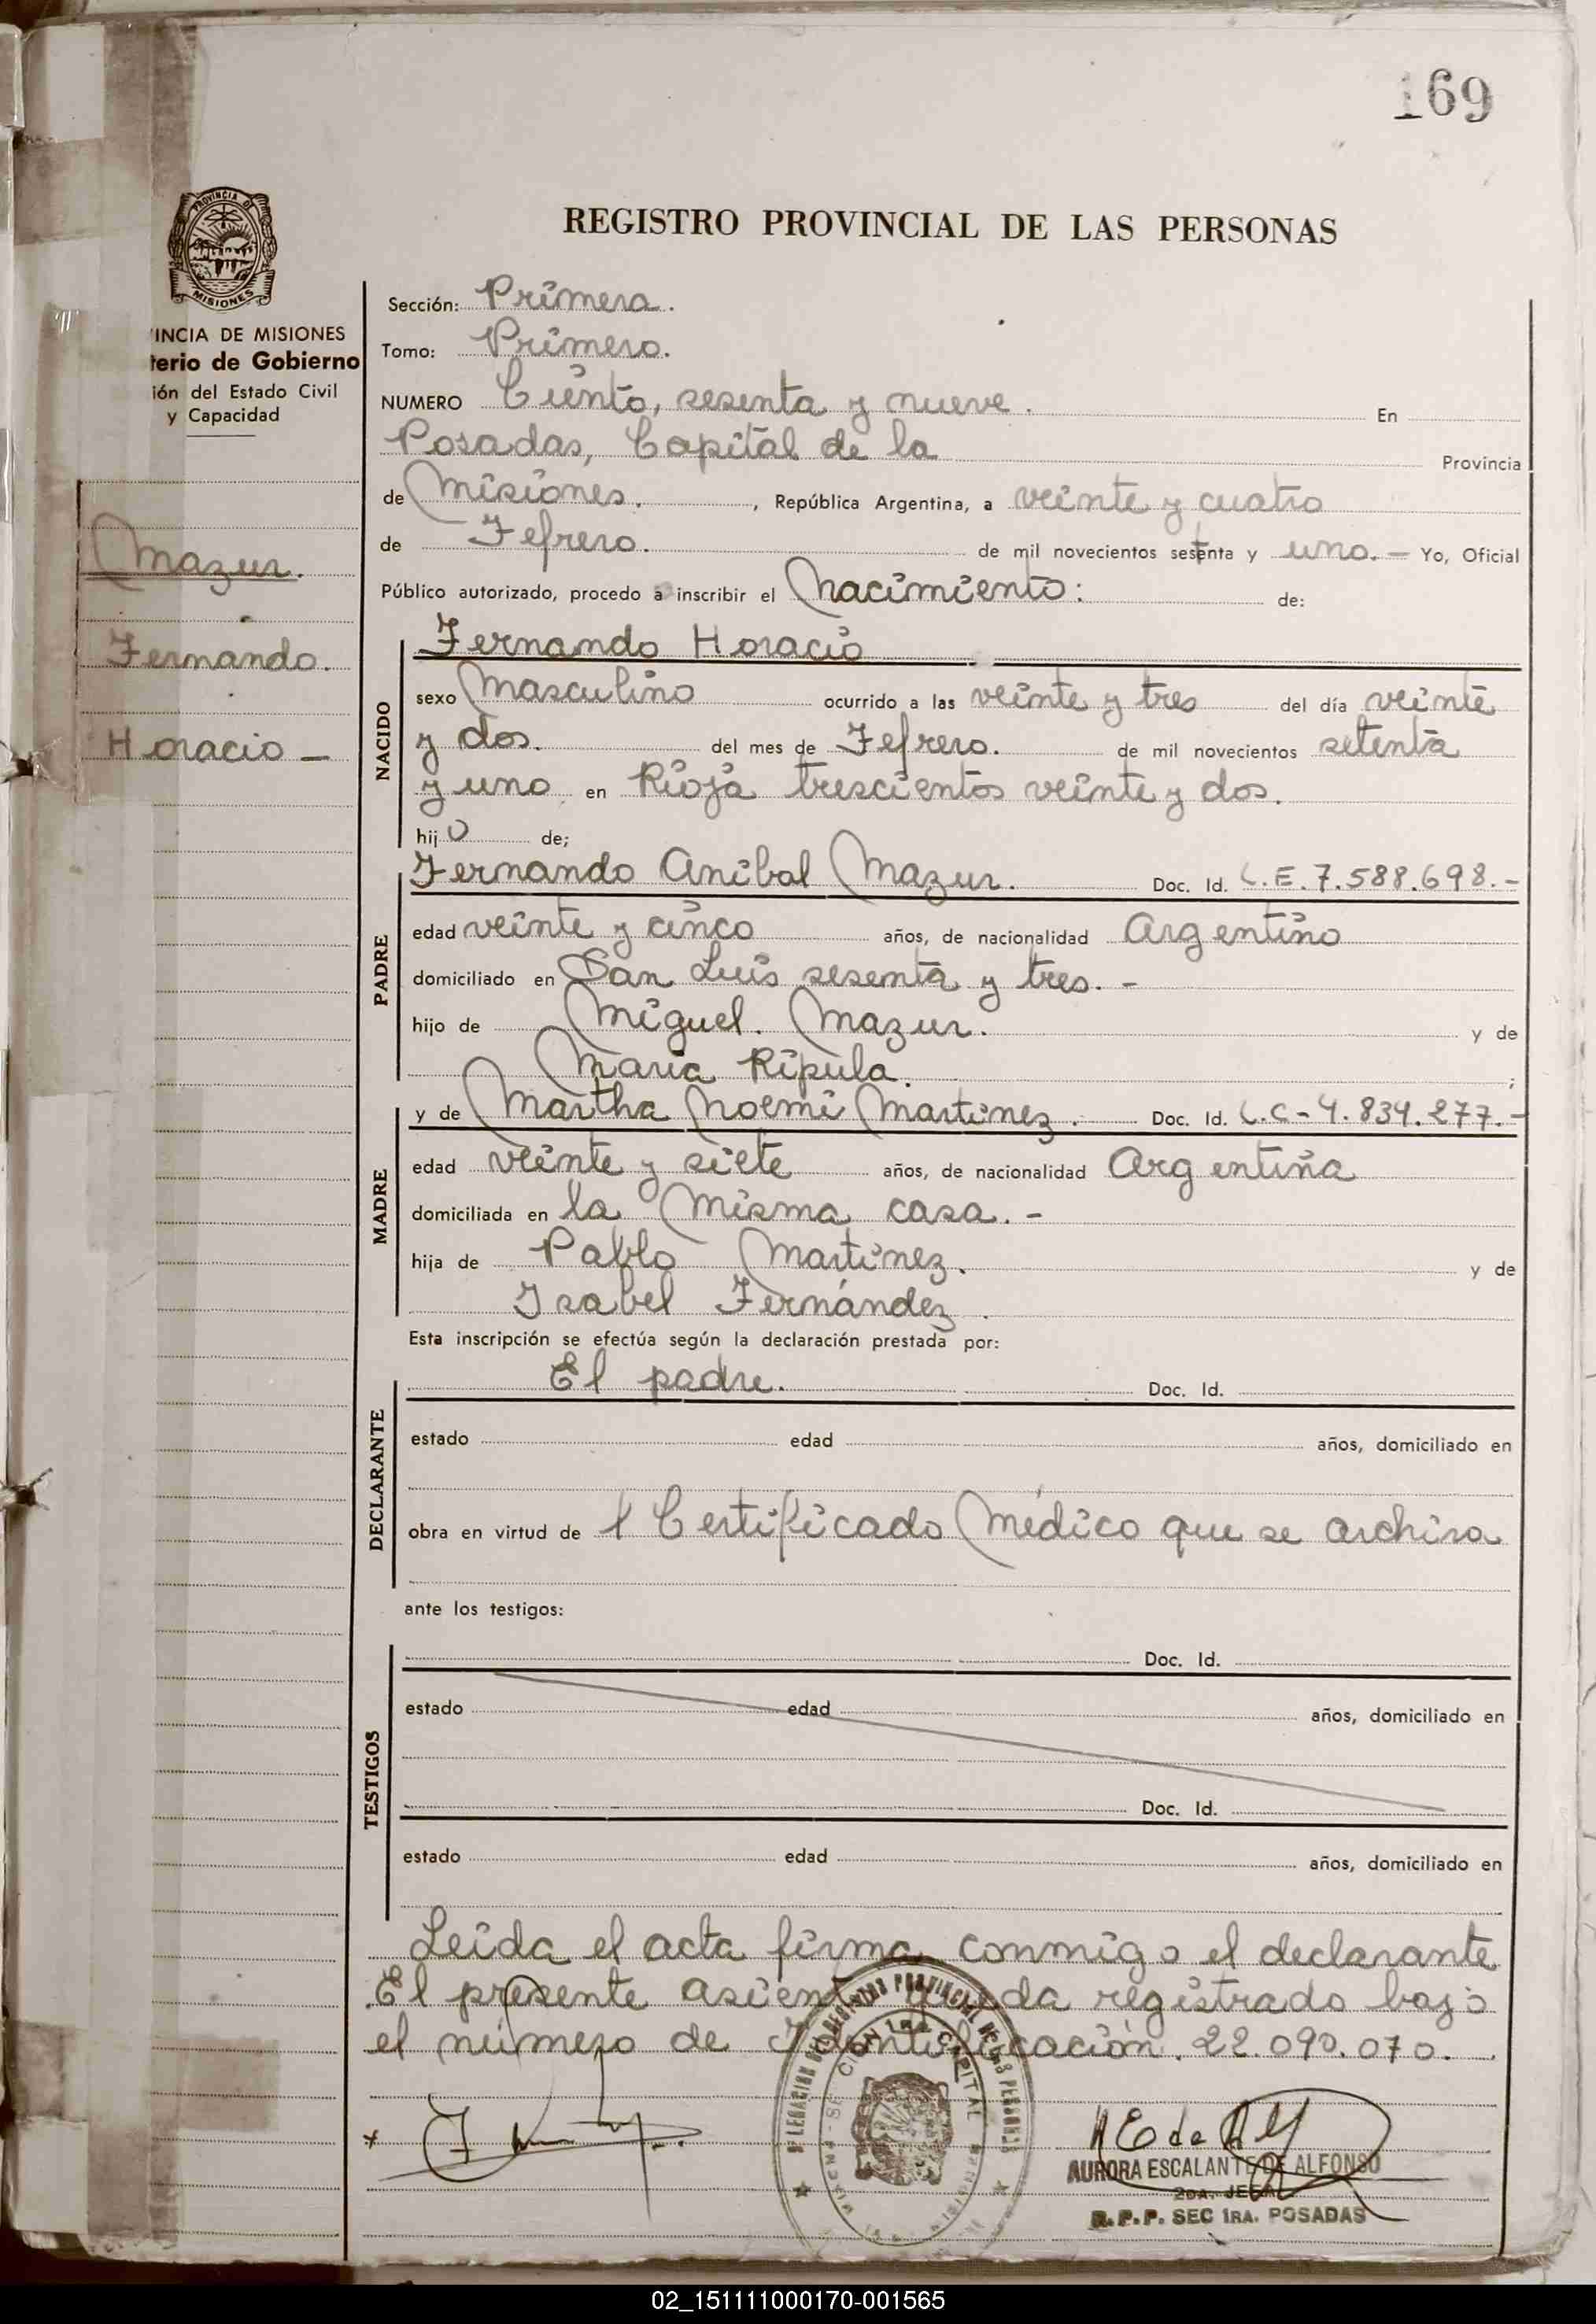 169
REGISTRO PROVINCIAL DE LAS PERSONAS
PROVINCIA DE
MISIONES
INCIA DE MISIONES
terio de Gobierno
ión del Estado Civil
y Capacidad
Mazur.
Fernando.
Horacio -
Sección: Primera.
Tomo: Primero.
NUMERO Ciento, sesenta y nueve. En
Posadas, Capital de la Provincia
de Misiones. , República Argentina, a veinte y cuatro
de Febrero. de mil novecientos setenta y uno. - Yo, Oficial
Público autorizado, procedo a inscribir el Nacimiento: de:
NACIDO
Fernando Horacio
sexo Masculino ocurrido a las veinte y tres del día veinte
y dos. del mes de Febrero. de mil novecientos setenta
y uno en Rioja trescientos veinte y dos.
hijo de;
PADRE
Fernando Anibal Mazur. Doc. Id. L.E. 7.588.698.-
edad veinte y cinco años, de nacionalidad Argentino
domiciliado en San Luis sesenta y tres. -
hijo de Miguel. Mazur. y de
Maria Ripula. ;
MADRE
y de Martha Noemi Martinez. Doc. Id. L.C-4.834.277.-
edad veinte y siete años, de nacionalidad Argentina
domiciliada en la Misma casa. -
hija de Pablo Martinez. y de
Isabel Fernández.
Esta inscripción se efectúa según la declaración prestada por:
DECLARANTE
El padre. Doc. Id.
estado edad años, domiciliado en
obra en virtud de 1 Certificado Médico que se archiva
ante los testigos:
TESTIGOS
Doc. Id.
estado edad años, domiciliado en
Doc. Id.
estado edad años, domiciliado en
Leida el acta firma conmigo el declarante
El presente asiento queda registrado bajo
el número de Identificación. 22.090.070.
AURORA ESCALANTE DE ALFONSO
2DA. JEFA
R.P.P. SEC 1RA. POSADAS
02_151111000170-001565